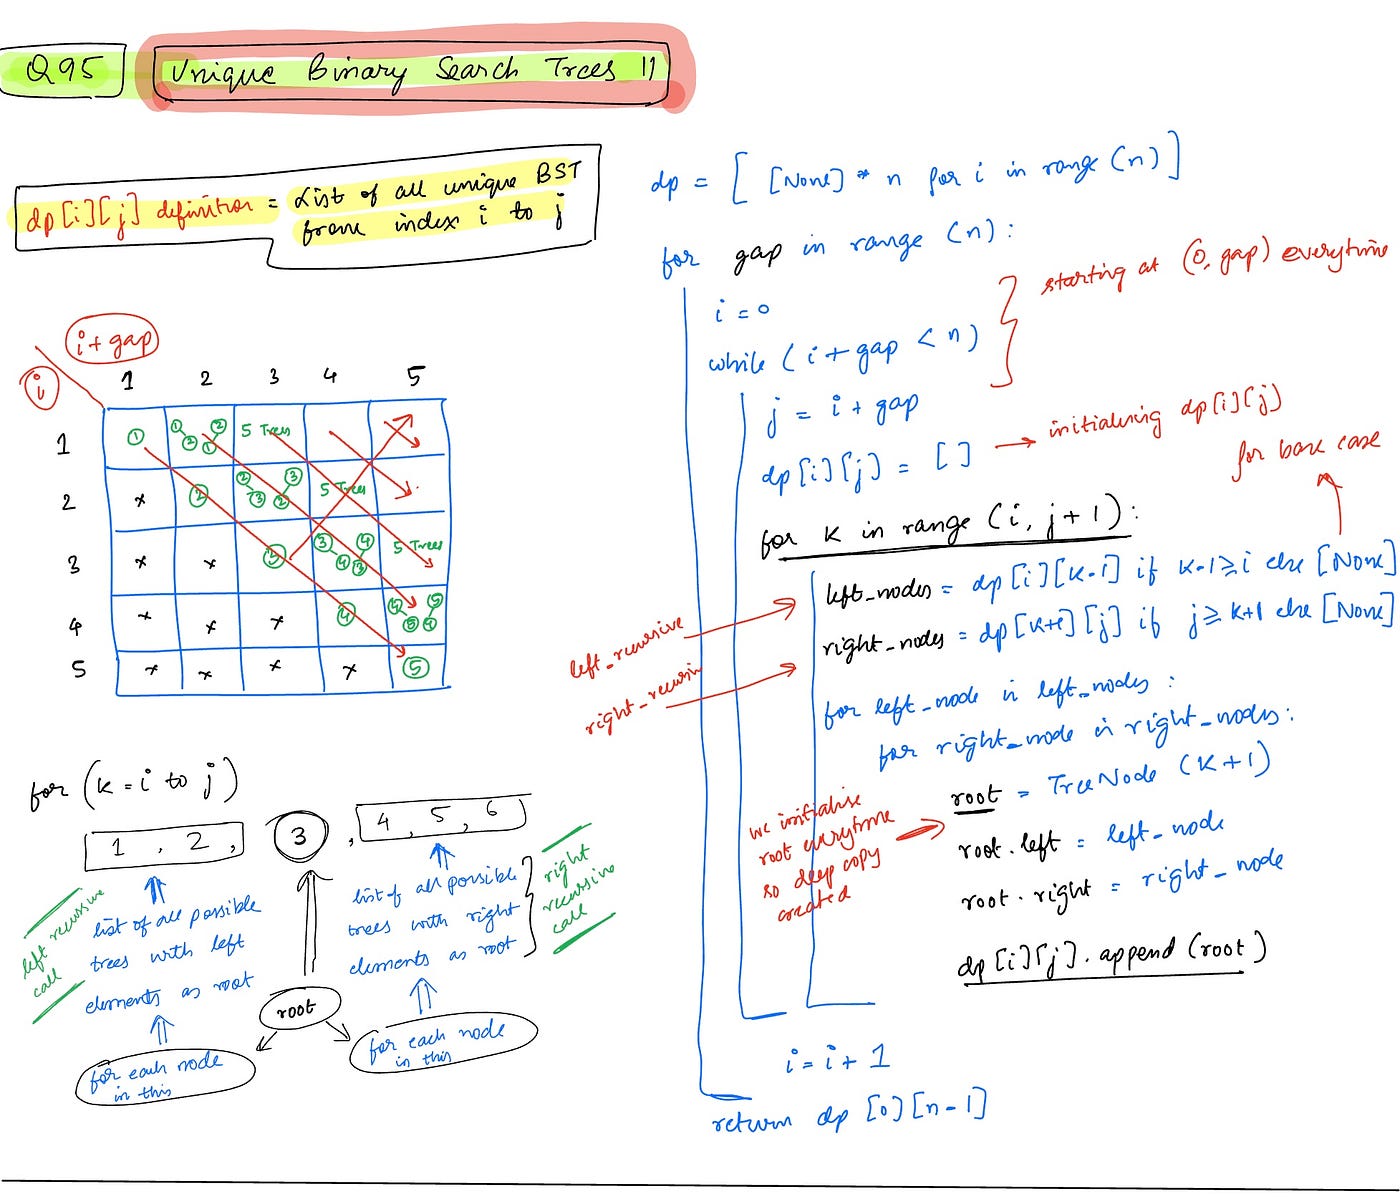 Q95
Unique Binary Search Trees II
dp[i][j] definition = List of all unique BST
from index i to j
i + gap
i
1 2 3 4 5
1 ① ① ② ② ① 5 Trees
2 x ② ② ③ ③ ② 5 Trees
3 x x ③ ③ ④ ④ ③ 5 Trees
4 x x x ④ ④ ⑤ ⑤ ④
5 x x x x ⑤
for (k = i to j)
1 , 2 , 3 , 4 , 5 , 6
left recursive
call
list of all possible
trees with left
elements as root
for each node
in this
root
list of all possible
trees with right
elements as root
for each node
in this
right
recursive
call
dp = [ [None] * n for i in range (n) ]
for gap in range (n):
i = 0
while ( i + gap < n)
starting at (0, gap) everytime
j = i + gap
dp[i][j] = [ ] → initialising dp[i][j]
for base case
for k in range (i, j+1):
left_nodes = dp [i][k-1] if k-1 ≥ i else [None]
right_nodes = dp[k+1][j] if j ≥ k+1 else [None]
left_recursive
right_recursiv
for left_node in left_nodes :
for right_node in right_nodes:
root = TreeNode (k+1)
root.left = left_node
root.right = right_node
we initialise
root everytime
so deep copy
created
dp[i][j].append(root)
i = i + 1
return dp [0][n-1]